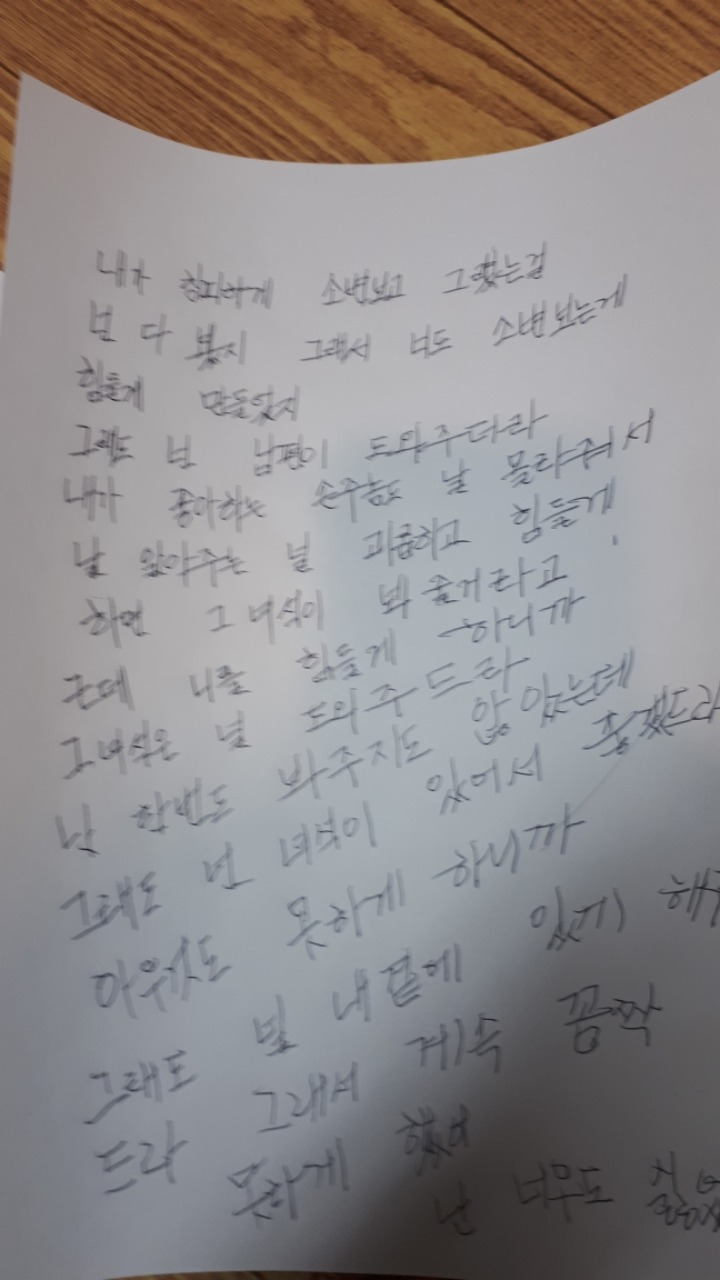 내가 창피하게 소변보고 그랬는걸
넌 다 봤지 그래서 너도 소변보는게
힘들게 만들었지
그래도 넌 남편이 도와주더라
내가 좋아하는 손주놈도 날 몰라줘서
날 알아주는 널 괴롭하고 힘들게
하면 그녀석이 봐줄거라고
근데 너를 힘들게 하니까
그녀석은 널 도와주드라
난 한번도 봐주지도 않았는데
그래도 넌 녀석이 있어서 좋겠드라
아무것도 못하게 하니까
그래도 널 내곁에 있게 해
드라 그래서 계속 꼼짝
못하게 했어
난 너무도